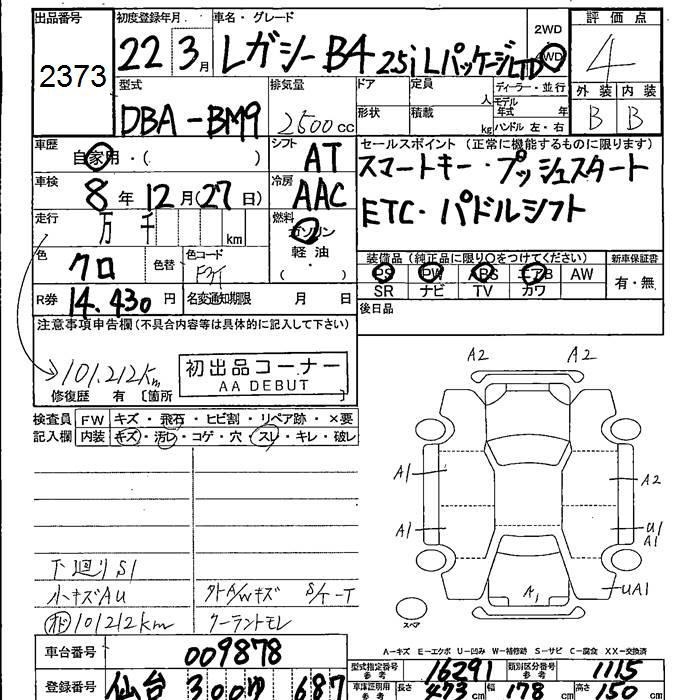 出品番号 初度登録年月 車名・グレード 2WD 評価点
2373 22 3月 レガシーB4 2.5i Lパッケージ LTD 4WD 4
型式 排気量 ドア 定員 人 ディーラー・並行 外装 内装
DBA-BM9 2500cc 形状 積載 kg モデル年式 年 ハンドル 左・右 B B
車歴 自家用・( ) シフト AT セールスポイント (正常に機能するものに限ります)
スマートキー・プッシュスタート
車検 8年12月(27日) 冷房 AAC
ETC・パドルシフト
走行 万 千 km 燃料 ガソリン 軽油 ・( )
色 クロ 色替 色コード
装備品 (純正品に限り○をつけてください) 新車保証書
PS PW ABS エアB AW 有・無
SR ナビ TV カワ
R券 14.430円 名変通知期限 月 日
後日品
注意事項申告欄(不具合内容等は具体的に記入して下さい)
101,212km
初出品コーナー
AA DEBUT
修復歴 有 〔箇所 〕
検査員 FW キズ・飛石・ヒビ割・リペア跡・×要
記入欄 内装 キズ・汚レ・コゲ・穴・スレ・キレ・破レ
A2 A2
A1 A2
A1 U1
A1
A1 UA1
スペア
下廻りS1
小キズAU クトA/Wキズ
101212km クーラントモレ
A-キズ E-エクボ U-凹み W-補修跡 S-サビ C-腐食 XX-交換済
車台番号 009878
型式指定番号 参考 16291 類別区分番号 参考 1115
登録番号 仙台 300 ゆ 687
車庫証明用 参考 長さ 473cm 幅 178cm 高さ 150cm